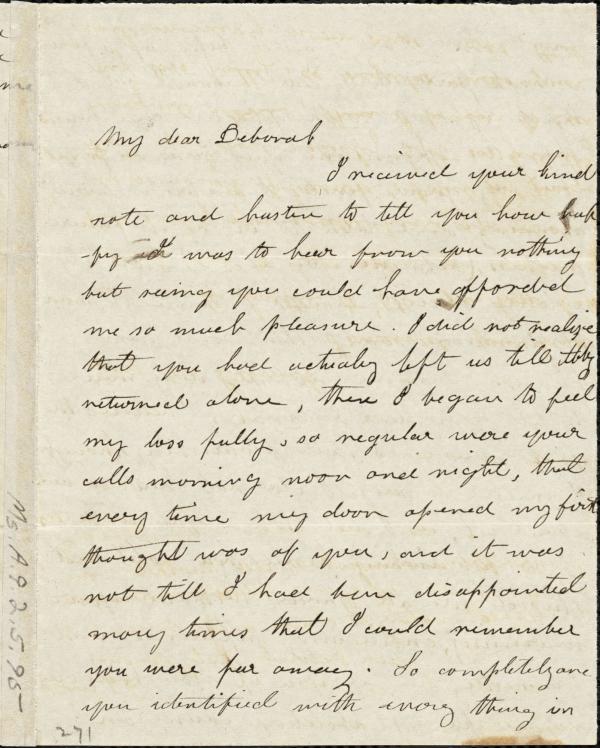 My dear Deborah
I received your kind
note and hasten to tell you how hap
-py I was to hear from you nothing
but seeing you could have afforded
me so much pleasure. I did not realize
that you had actually left us till Abby
returned alone, then I began to feel
my loss fully, so regular were your
calls morning noon and night, that
every time my door opened my first
thought was of you, and it was
not till I had been disappointed
many times that I could remember
you were far away. So completely are
you identified with every thing in
Ms.A.9.2.5.95
271